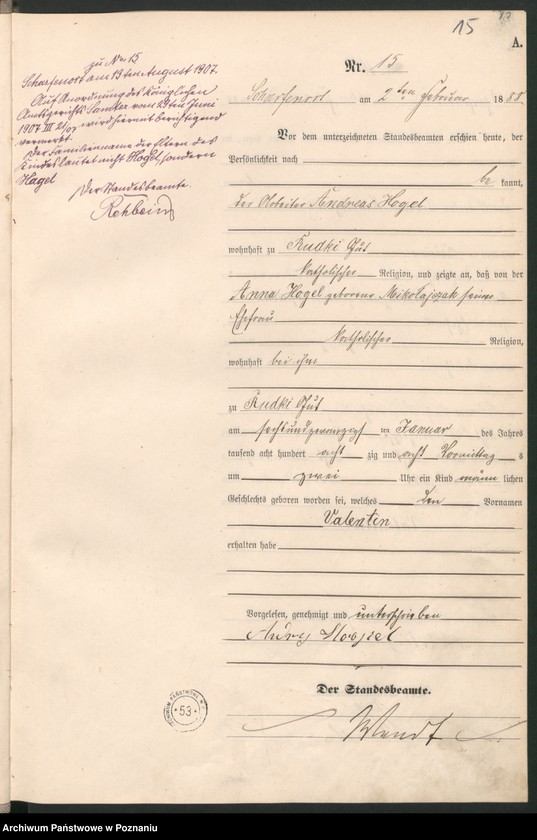 15
A.
Nr. 15
Scharfenort am 2ten Februar 1888
Vor dem unterzeichneten Standesbeamten erschien heute, der
Persönlichkeit nach
be kannt,
der Arbeiter Andreas Hogel
wohnhaft zu Rudki Gut
katholischer Religion, und zeigte an, daß von der
Anna Hogel geborene Mikolajczak seiner
Ehefrau
katholischer Religion,
wohnhaft bei ihm
zu Rudki Gut
am sechsundzwanzigsten Januar des Jahres
tausend acht hundert acht zig und acht Vormittag s
um zwei Uhr ein Kind männ lichen
Geschlechts geboren worden sei, welches den Vornamen
Valentin
erhalten habe
Vorgelesen, genehmigt und unterschrieben
Der Standesbeamte.
Wendt
zu No 15
Scharfenort am 13ten August 1907.
Auf Anordnung des Königlichen
Amtsgerichts Samter vom 29ten Juni
1907 III wird hiermit berichtigend
vermerkt
Der Familienname der Eltern des
Kindes lautet nicht Hogel, sondern
Hagel
Der Standesbeamte.
Rehbein
53
Archiwum Państwowe w Poznaniu